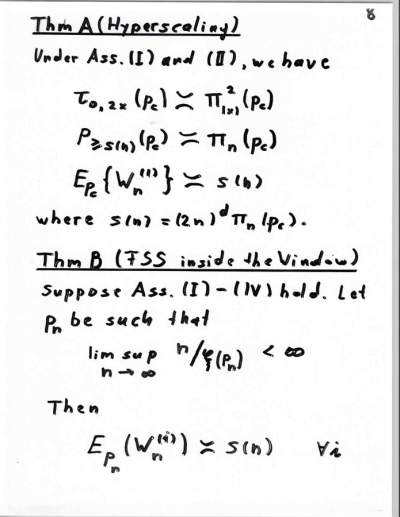 8
Thm A (Hyperscaling)
Under Ass. (I) and (II), we have
τ_{0,2x}(p_c) ≍ π²_{|x|}(p_c)
P_{≥s(n)}(p_c) ≍ π_n(p_c)
E_{p_c}{W_n^{(1)}} ≍ s(n)
where s(n) = (2n)^d π_n(p_c).
Thm B (FSS inside the Window)
Suppose Ass. (I)-(IV) hold. Let
p_n be such that
lim sup_{n→∞} n/ξ(p_n) < ∞
Then
E_{p_n}(W_n^{(i)}) ≍ s(n) ∀i